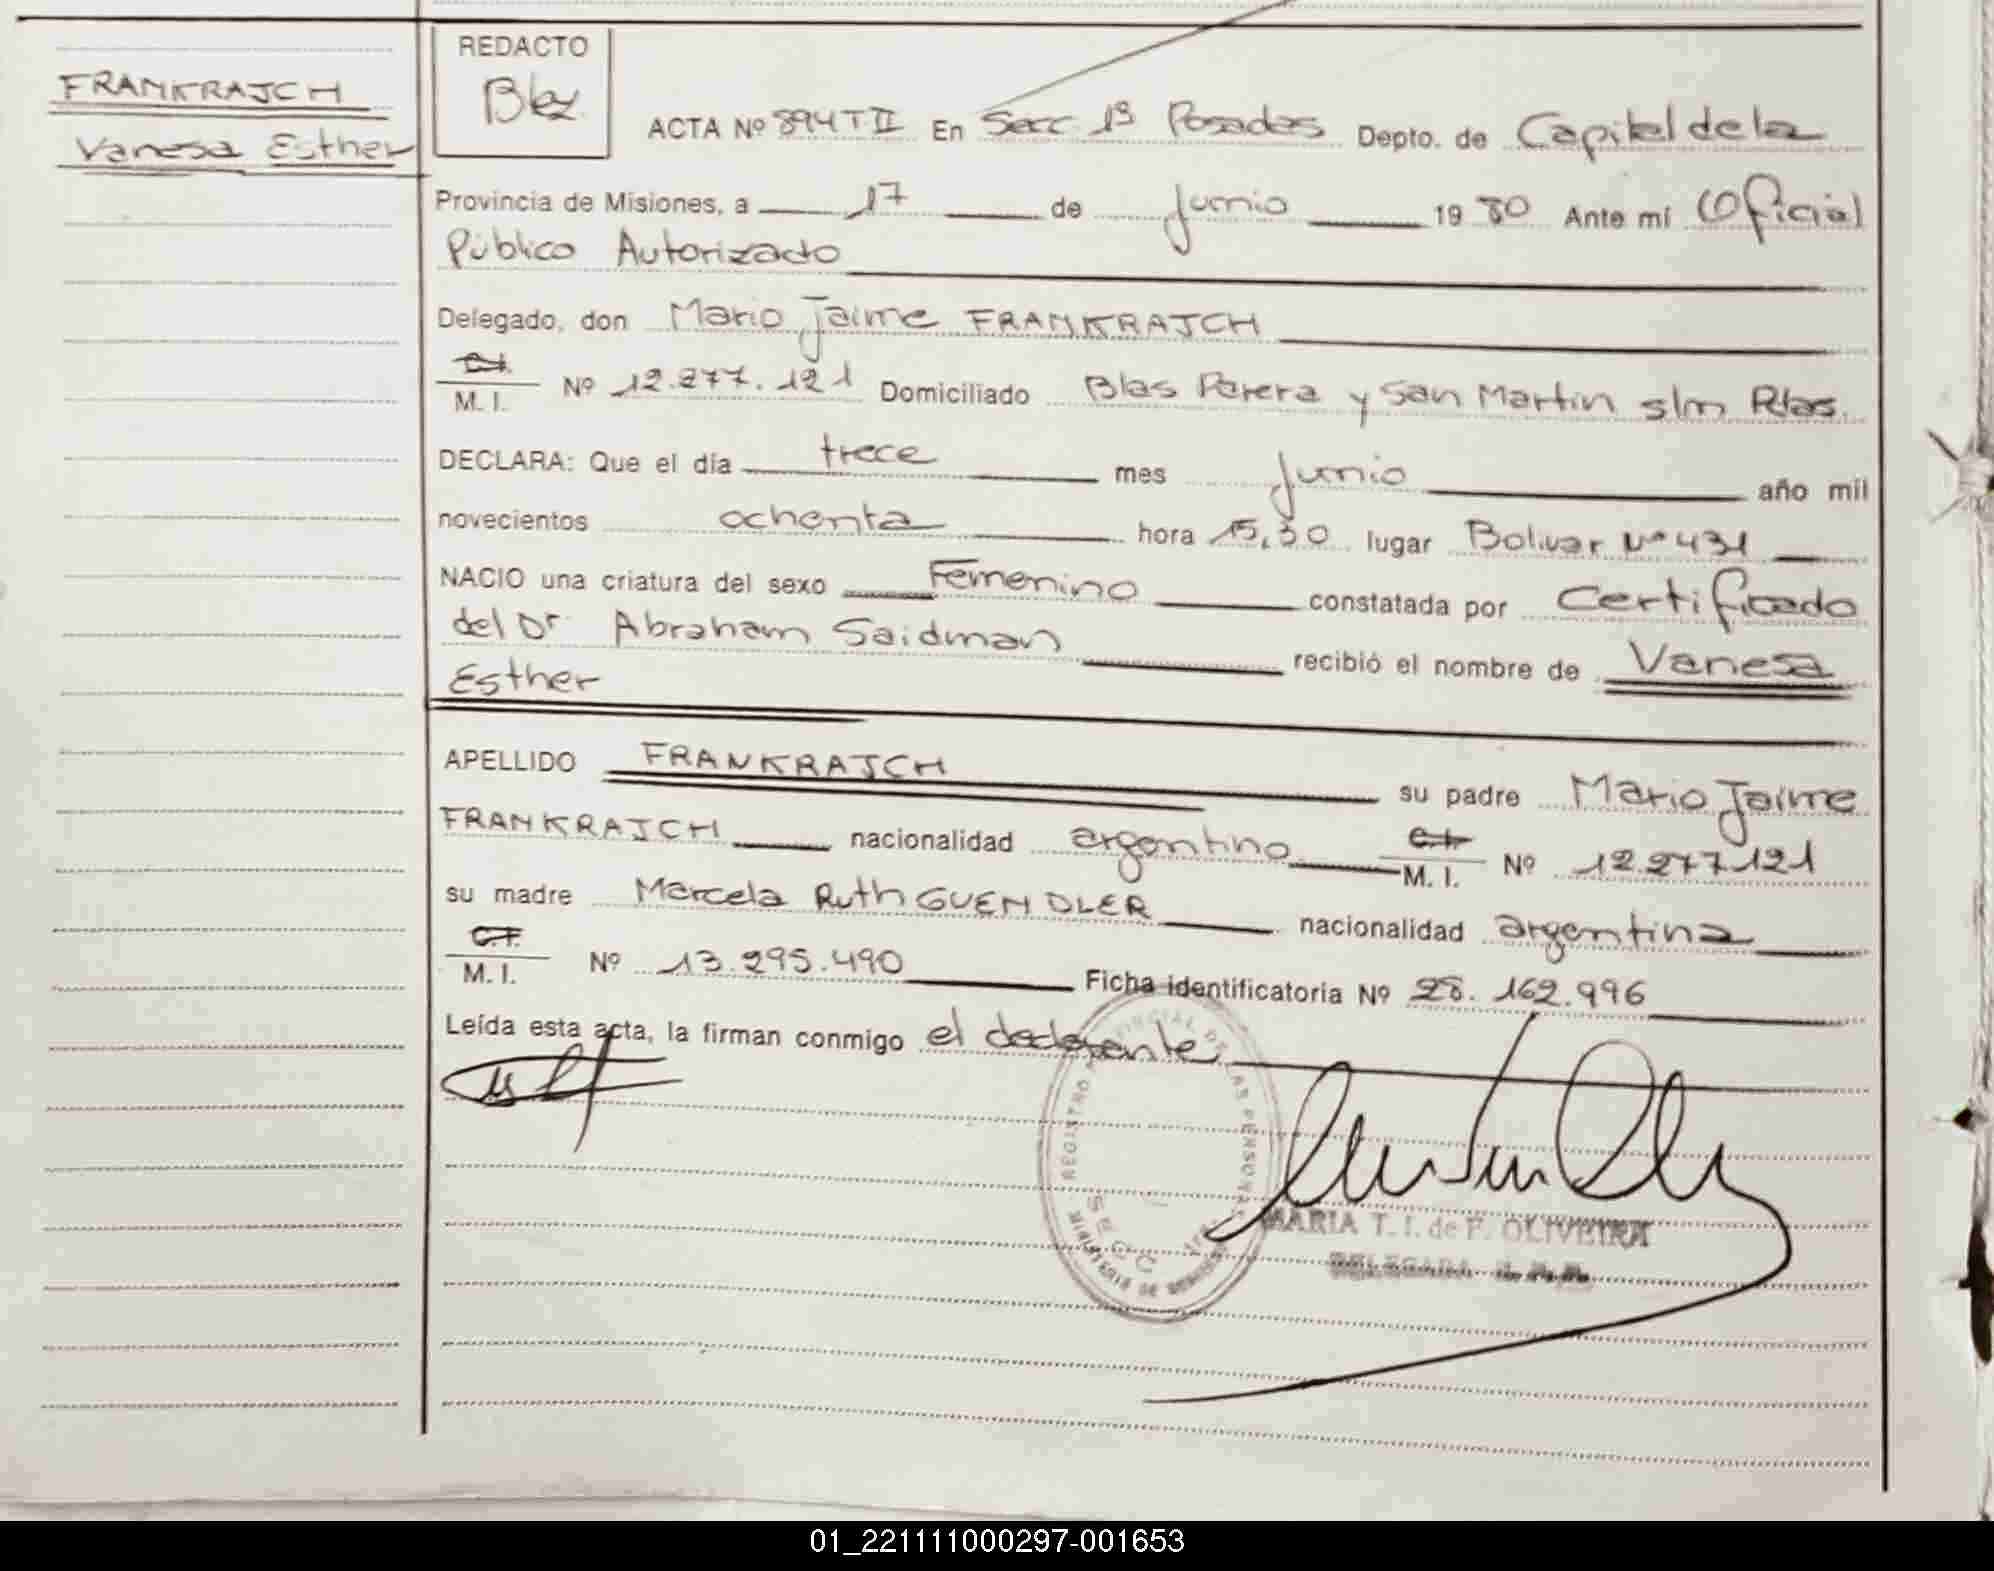 FRANKRAJCH
Vanesa Esther
REDACTO
Blez
ACTA Nº 894 T II En Secc 1ª Posadas Depto. de Capital de la
Provincia de Misiones, a 17 de Junio 19 80 Ante mí Oficial
Público Autorizado
Delegado, don Mario Jaime FRANKRAJCH
C.I.
M. I. Nº 12.277.121 Domiciliado Blas Parera y San Martin s/n Pdas.
DECLARA: Que el día trece mes Junio año mil
novecientos ochenta hora 15,30 lugar Bolivar Nº 431
NACIO una criatura del sexo Femenino constatada por Certificado
del Dr Abraham Saidman recibió el nombre de Vanesa
Esther
APELLIDO FRANKRAJCH su padre Mario Jaime
FRANKRAJCH nacionalidad argentino C.I.
M. I. Nº 12.277.121
su madre Marcela Ruth GUENDLER nacionalidad argentina
C.I.
M. I. Nº 13.295.490 Ficha identificatoria Nº 28.162.996
Leída esta acta, la firman conmigo el declarante
REGISTRO PROVINCIAL DE LAS PERSONAS
SECC 1ra.
MINISTERIO DE
MARIA T. I. de F. OLIVEIRA
DELEGADA
01_221111000297-001653